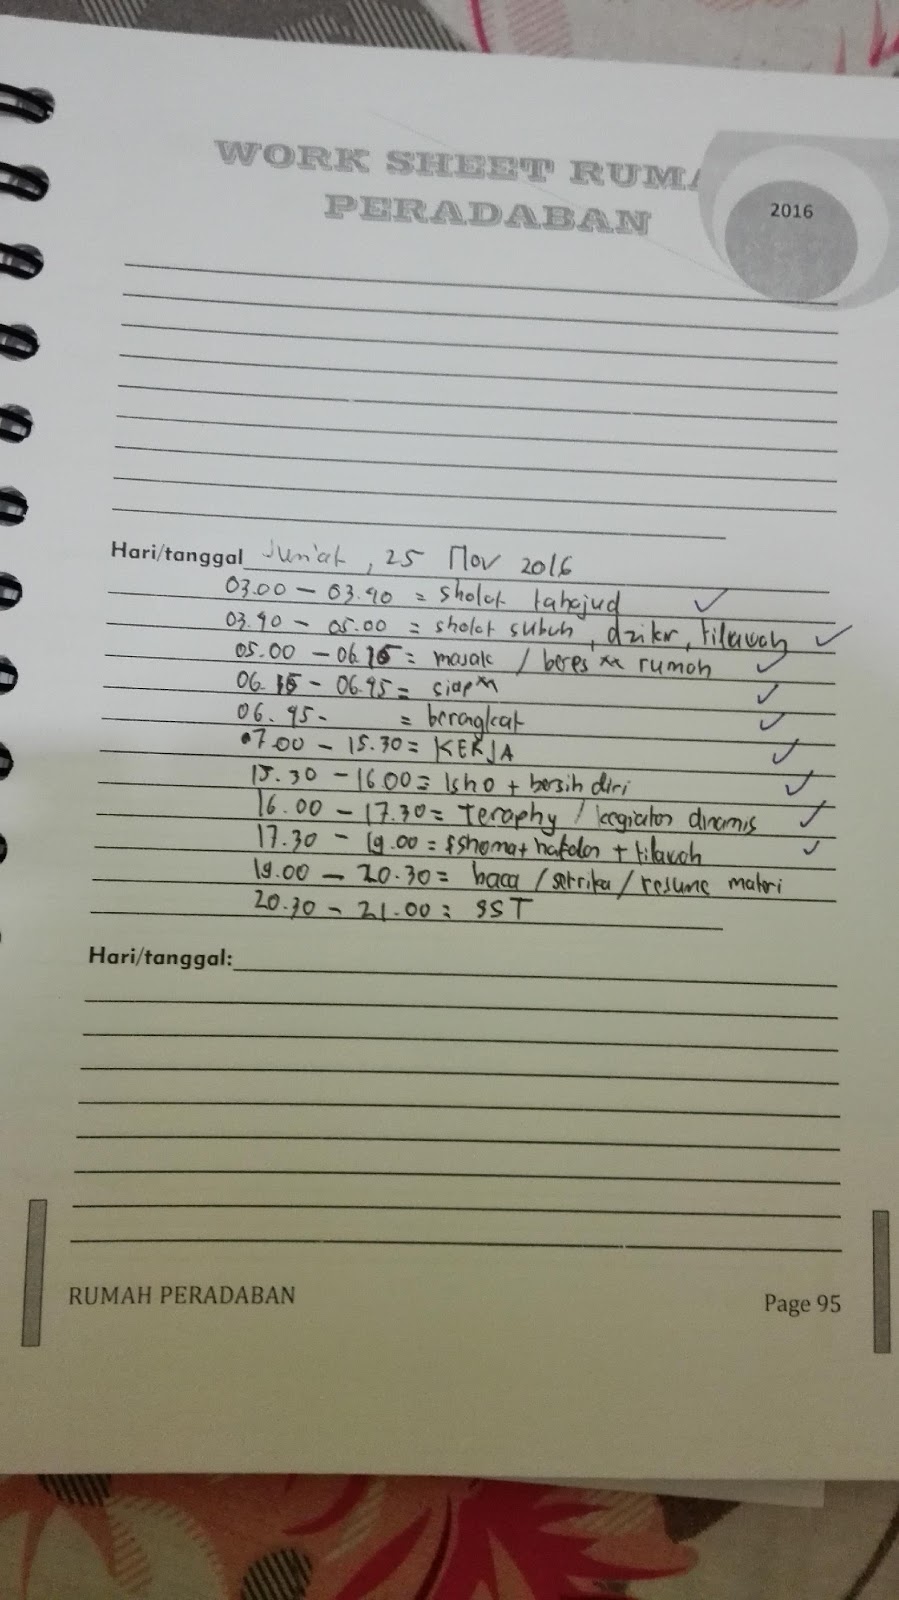 WORK SHEET RUMA
PERADABAN
2016
Hari/tanggal Jum'at, 25 Nov 2016
03.00 - 03.40 = sholat tahajud ✓
03.40 - 05.00 = sholat subuh, dzikir, tilawah ✓
05.00 - 06.15 = masak / beres" rumah ✓
06.15 - 06.45 = siap" ✓
06.45 - = berangkat ✓
07.00 - 15.30 = KERJA ✓
15.30 - 16.00 = Isho + bersih diri ✓
16.00 - 17.30 = Teraphy / kegiatan dinamis ✓
17.30 - 19.00 = + hafalan + tilawah ✓
19.00 - 20.30 = baca / setrika / resume materi
20.30 - 21.00 = SST
Hari/tanggal:
RUMAH PERADABAN
Page 95